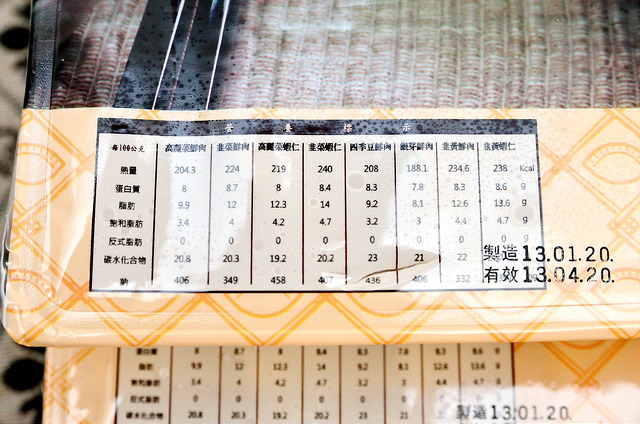 營養標示
每100公克 高麗菜鮮肉 韭菜鮮肉 高麗菜蝦仁 韭菜蝦仁 四季豆鮮肉 銀芽鮮肉 韭黃鮮肉 韭黃蝦仁
熱量 204.3 224 219 240 208 188.1 234.6 238 Kcal
蛋白質 8 8.7 8 8.4 8.3 7.8 8.3 8.6 g
脂肪 9.9 12 12.3 14 9.2 8.1 12.6 13.6 g
飽和脂肪 3.4 4 4.2 4.7 3.2 3 4.4 4.7 g
反式脂肪 0 0 0 0 0 0 0 0 g
碳水化合物 20.8 20.3 19.2 20.2 23 21 22
鈉 406 349 458 407 436 406 332
製造13.01.20.
有效13.04.20.
蛋白質 8 8.7 8 8.4 8.3 7.8 8.3 8.6
脂肪 9.9 12 12.3 14 9.2 8.1 12.6 13.6
飽和脂肪 3.4 4 4.2 4.7 3.2 3 4.4 4.7
反式脂肪 0 0 0 0 0 0 0 0
碳水化合物 20.8 20.3 19.2 20.2 23 21
製造13.01.20.